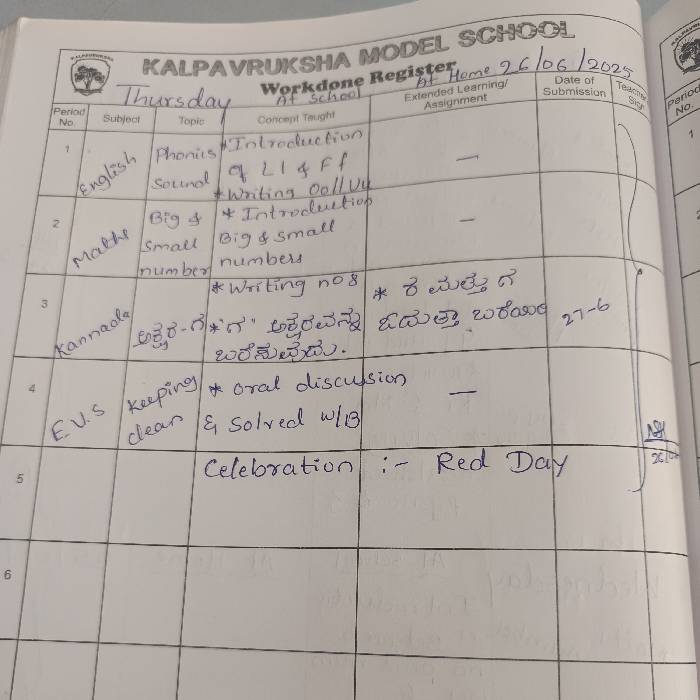 KALPAVRUKSHA MODEL SCHOOL
Workdone Register
Thursday At School At Home 26/06/2025
Period No. Subject Topic Concept Taught Extended Learning/ Assignment Date of Submission Teacher Sign
1 English Phonics Sound * Introduction of Ll & Ff * Writing Oo ll Uu —
2 Maths Big & Small number * Introduction Big & small numbers * Writing no 8 —
3 Kannada ಅಕ್ಷರ-ಗ * "ಗ" ಅಕ್ಷರವನ್ನು ಬರೆಸುವುದು. * ಕ ಮತ್ತು ಗ ಓದುತ್ತಾ ಬರೆಯಿರಿ 27-6
4 E.V.S Keeping clean * Oral discussion & Solved W/B —
5 Celebration :- Red Day
6